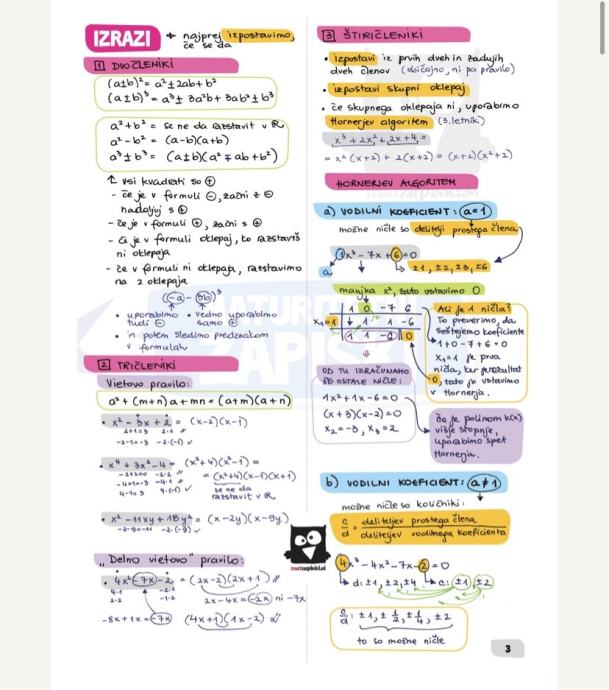 IZRAZI → najprej izpostavimo,
če se da
1 DVOČLENIKI
(a±b)² = a² ± 2ab + b²
(a±b)³ = a³ ± 3a²b + 3ab² ± b³
a² + b² = se ne da razstavit v ℝ
a² - b² = (a-b)(a+b)
a³ ± b³ = (a±b)(a² ∓ ab + b²)
↑ vsi kvadrati so ⊕
- če je v formuli ⊖, začni z ⊖
nadaljuj s ⊕
- če je v formuli ⊕, začni s ⊕
- če je v formuli oklepaj, to razstaviš
ni oklepaja
- če v formuli ni oklepaja, razstavimo
na 2 oklepaja
(-a - 3b)³
• uporabimo • vedno uporabimo
tudi ⊖ samo ⊕
• in potem sledimo predznakom
v formulah
2 TRIČLENIKI
Vietovo pravilo:
a² + (m+n)a + mn = (a+m)(a+n)
• x² - 3x + 2 = (x-2)(x-1)
2+1=3 2·1 //
-2-1=-3 -2·(-1) ✓
• x⁴ + 3x² - 4 = (x²+4)(x²-1) =
= (x²+4)(x-1)(x+1)
-4+1=-3 -4·1
4-1=3 4·(-1) ✓
se ne da
razstavit v ℝ
• x² - 11xy + 18y² = (x-2y)(x-9y)
-2-9=-11 -2·(-9) ✓
"Delno vietovo" pravilo:
• 4x² - 7x - 2 = (2x-2)(2x+1) //
4·1 -2·1
2·2 -1·2
2x-4x = -2x ni -7x
-8x+1x = -7x (4x+1)(1x-2) ✓
3 ŠTIRIČLENIKI
• Izpostavi iz prvih dveh in zadnjih
dveh členov (običajno, ni pa pravilo)
• izpostavi skupni oklepaj
• če skupnega oklepaja ni, uporabimo
Hornerjev algoritem (3. letnik)
x³ + 2x² + 2x + 4 =
= x²(x+2) + 2(x+2) = (x+2)(x²+2)
HORNERJEV ALGORITEM
a) VODILNI KOEFICIENT: a=1
možne ničle so delitelji prostega člena
1x³ - 7x + 6 = 0
a ↳ ±1, ±2, ±3, ±6
manjka x², zato vstavimo 0
1 0 -7 6
x₁=1 ↓ 1 1 -6
1 1 -6 0
Ali je 1 ničla?
To preverimo, da
seštejemo koeficiente
1+0-7+6=0
x₁=1 je prva
ničla, ker je rezultat
0, zato jo vstavimo
v Hornerja.
OD TU IZRAČUNAMO
ŠE OSTALE NIČLE:
1x² + 1x - 6 = 0
(x+3)(x-2) = 0
x₂=-3, x₃=2
Če je polinom k(x)
višje stopnje,
uporabimo spet
Hornerja.
b) VODILNI KOEFICIENT: a≠1
možne ničle so količniki:
c/d = delitelji prostega člena / delitelji vodilnega koeficienta
4x³ - 4x² - 7x - 2 = 0
↳ d: ±1, ±2, ±4 ↳ c: ±1, ±2
c/d: ±1, ±1/2, ±1/4, ±2
to so možne ničle
matzapiski.si
3